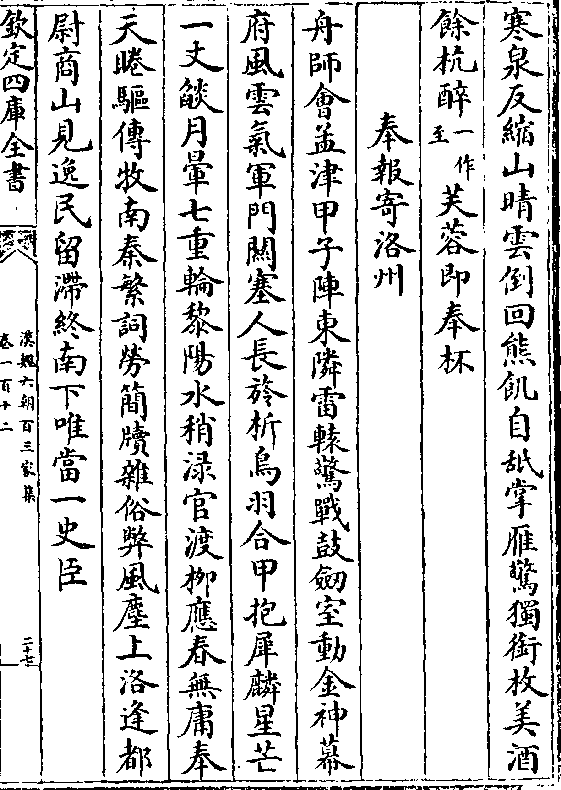 寒泉反縮山晴雲倒回熊飢自䑛掌雁驚獨銜枚美酒
餘杭醉一作至芙蓉即奉杯
奉報寄洛州
舟師會孟津甲子陣東隣雷轅驚戰鼓劒室動金神幕
府風雲氣軍門關塞人長旍析鳥羽合甲抱犀麟星芒
一丈燄月暈七重輪黎陽水稍渌官渡栁應春無庸奉
天睠驅傳牧南秦繁詞勞簡牘雜俗弊風塵上洛逢都
尉商山見逸民留滯終南下唯當一史臣
欽定四庫全書
漢魏六朝百三家集
卷一百十二
二十七